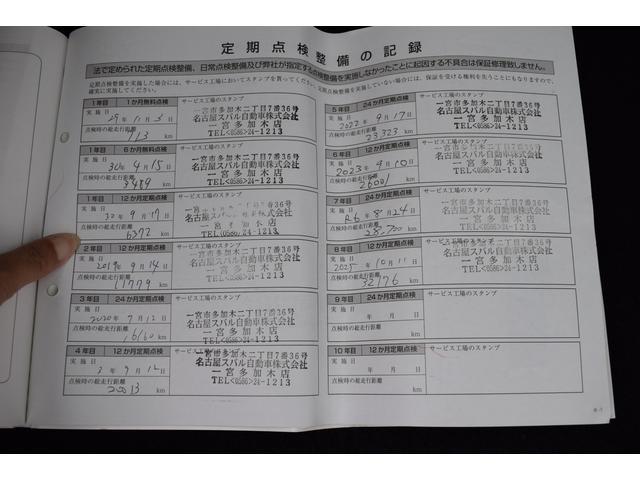 定期点検整備の記録
法で定められた定期点検整備、日常点検整備及び弊社が指定する点検整備を実施しなかったことに起因する不具合は保証修理致しません。
定期点検整備を実施した場合には、サービス工場においてスタンプを貰ってください。定期点検整備を実施していない場合には、保証を受ける権利を失うことにもなりますので、
確実に実施してください。
1年目 1か月無料点検
サービス工場のスタンプ
実施日 29年11月3日
点検時の総走行距離
113 km
一宮市多加木二丁目7番36号
名古屋スバル自動車株式会社
一宮多加木店
TEL<0586>24-1213
1年目 6か月無料点検
サービス工場のスタンプ
実施日 30年4月15日
点検時の総走行距離
3489 km
一宮市多加木二丁目7番36号
名古屋スバル自動車株式会社
一宮多加木店
TEL<0586>24-1213
1年目 12か月定期点検
サービス工場のスタンプ
実施日 30年9月17日
点検時の総走行距離
6392 km
名古屋スバル自動車株式会社
TEL<0586>24-1213
2年目 12か月定期点検
サービス工場のスタンプ
実施日 2019年9月14日
点検時の総走行距離
11779 km
一宮市多加木二丁目7番36号
名古屋スバル自動車株式会社
一宮多加木店
TEL<0586>24-1213
3年目 24か月定期点検
サービス工場のスタンプ
実施日 2020年9月12日
点検時の総走行距離
16160 km
一宮市多加木二丁目7番36号
名古屋スバル自動車株式会社
一宮多加木店
TEL<0586>24-1213
4年目 12か月定期点検
サービス工場のスタンプ
実施日 3年9月12日
点検時の総走行距離
20013 km
一宮市多加木二丁目7番36号
名古屋スバル自動車株式会社
一宮多加木店
TEL<0586>24-1213
5年目 24か月定期点検
サービス工場のスタンプ
実施日 2022年9月17日
点検時の総走行距離
23323 km
一宮市多加木二丁目7番36号
名古屋スバル自動車株式会社
一宮多加木店
TEL<0586>24-1213
6年目 12か月定期点検
サービス工場のスタンプ
実施日 2023年9月10日
点検時の総走行距離
26001 km
一宮市多加木二丁目7番36号
名古屋スバル自動車株式会社
一宮多加木店
TEL<0586>24-1213
7年目 24か月定期点検
サービス工場のスタンプ
実施日 R6年8月24日
点検時の総走行距離
km
一宮市多加木二丁目7番36号
名古屋スバル自動車株式会社
一宮多加木店
TEL<0586>24-1213
8年目 12か月定期点検
サービス工場のスタンプ
実施日 2025年10月11日
点検時の総走行距離
32776 km
一宮市多加木二丁目7番36号
名古屋スバル自動車株式会社
一宮多加木店
TEL<0586>24-1213
9年目 24か月定期点検
サービス工場のスタンプ
実施日 年 月 日
点検時の総走行距離
km
10年目 12か月定期点検
サービス工場のスタンプ
実施日 年 月 日
点検時の総走行距離
km